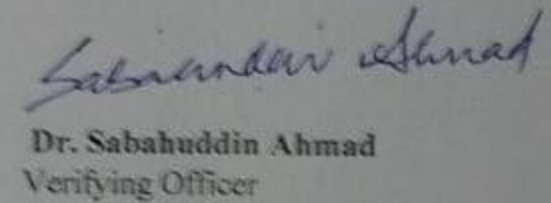 Sabahuddin Ahmad
Dr. Sabahuddin Ahmad
Verifying Officer